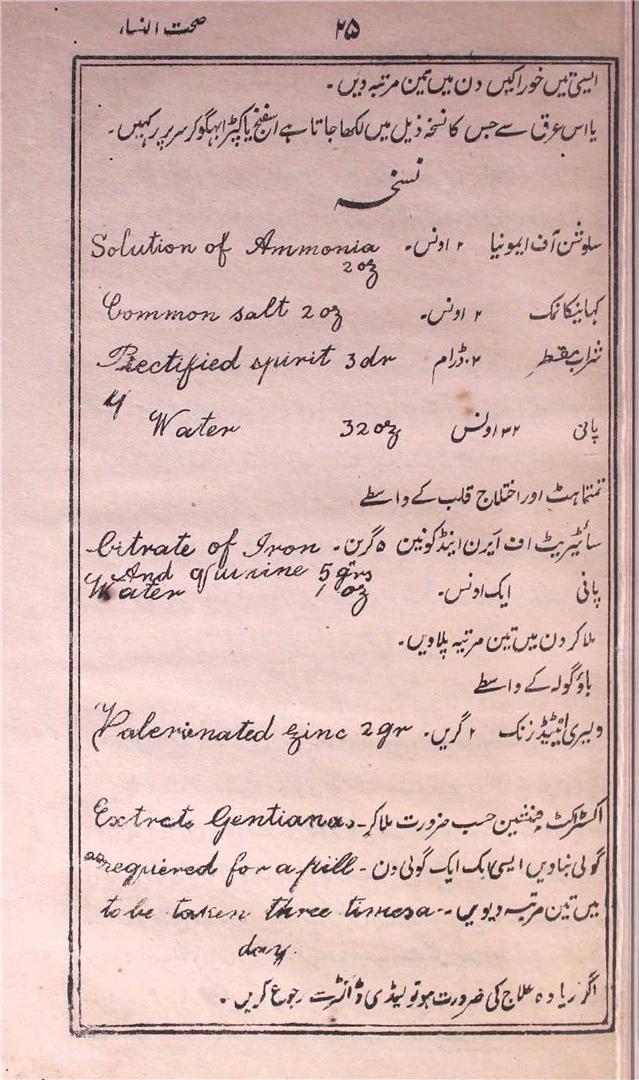 ۲۵ صحت النساء
ایسی تین خوراکیں دن میں تین مرتبہ دیں۔
یا اس عرق سے جس کا نسخہ ذیل میں لکھا جاتا ہے اسفنج یا کپڑا بہگو کر سر پر رکہیں۔
نسخہ
سلوشن آف ایمونیا ۲ اونس۔ Solution of Ammonia
2 oz
کہانیکا نمک ۲ اونس۔ Common salt 2 oz
شراب مقطر ۳ ڈرام Rectified spirit 3 dr
پانی ۳۲ اونس Water 32 oz
تمتماہٹ اور اختلاج قلب کے واسطے
سائیٹریٹ اف آیرن اینڈ کونین ۵ گرن۔ Citrate of Iron
And quinine 5 grs
پانی ایک اونس۔ Water 1 oz
ملا کر دن میں تین مرتبہ پلاویں۔
باؤ گولہ کے واسطے
ویلیری انیٹیڈ زنک ۲ گرین۔ Valerianated zinc 2 gr
اکسٹراکٹ جنشین حسب ضرورت ملا کر۔ Extrct Gentiana
گولی بناویں ایسی ایک ایک گولی دن۔ as requiered for a pill
میں تین مرتبہ دیویں۔ to be taken three times a
day.
اگر زیادہ علاج کی ضرورت ہو تو لیڈی ڈاکٹر سے رجوع کریں۔